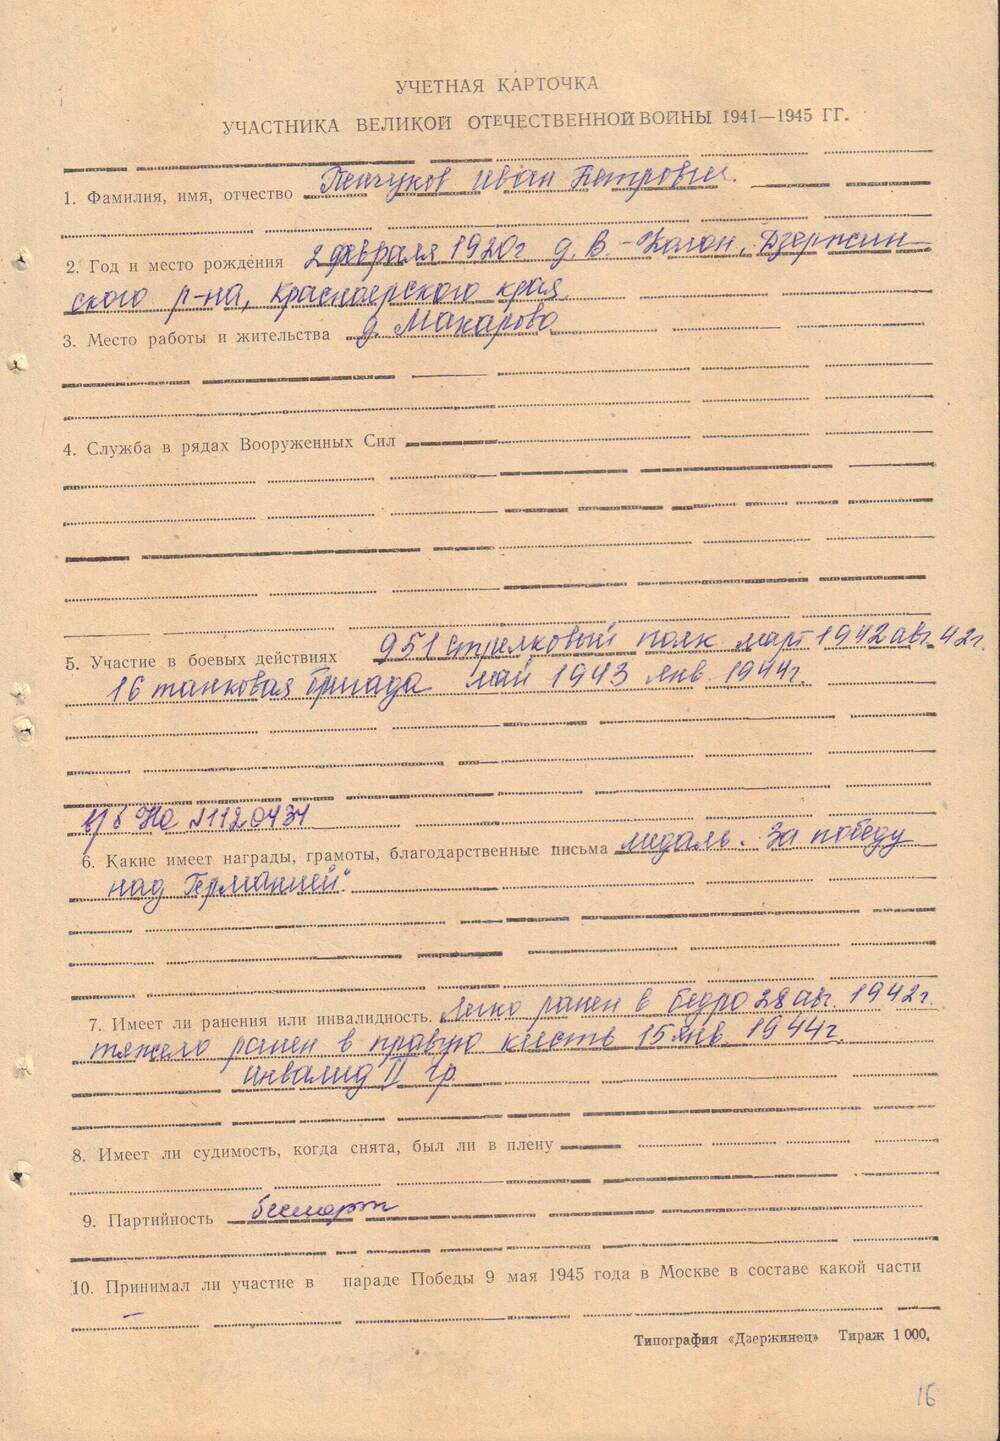 УЧЕТНАЯ КАРТОЧКА
УЧАСТНИКА ВЕЛИКОЙ ОТЕЧЕСТВЕННОЙ ВОЙНЫ 1941—1945 ГГ.
1. Фамилия, имя, отчество Пенчуков Иван Петрович.
2. Год и место рождения 2 февраля 1920 г д. В.-Жогон, Дзержин
ского р-на, Красноярского края
3. Место работы и жительства д. Макарово
4. Служба в рядах Вооруженных Сил
5. Участие в боевых действиях 951 стрелковый полк март 1942 авг. 42 г.
16 танковая бригада май 1943 янв. 1944 г.
№ 1120434
6. Какие имеет награды, грамоты, благодарственные письма медаль. За победу
над Германией".
7. Имеет ли ранения или инвалидность. Легко ранен в бедро 28 авг. 1942 г.
тяжело ранен в правую кисть 15 янв. 1944 г.
инвалид II гр.
8. Имеет ли судимость, когда снята, был ли в плену
9. Партийность беспарт
10. Принимал ли участие в параде Победы 9 мая 1945 года в Москве в составе какой части
–
Типография «Дзержинец» Тираж 1 000.
16